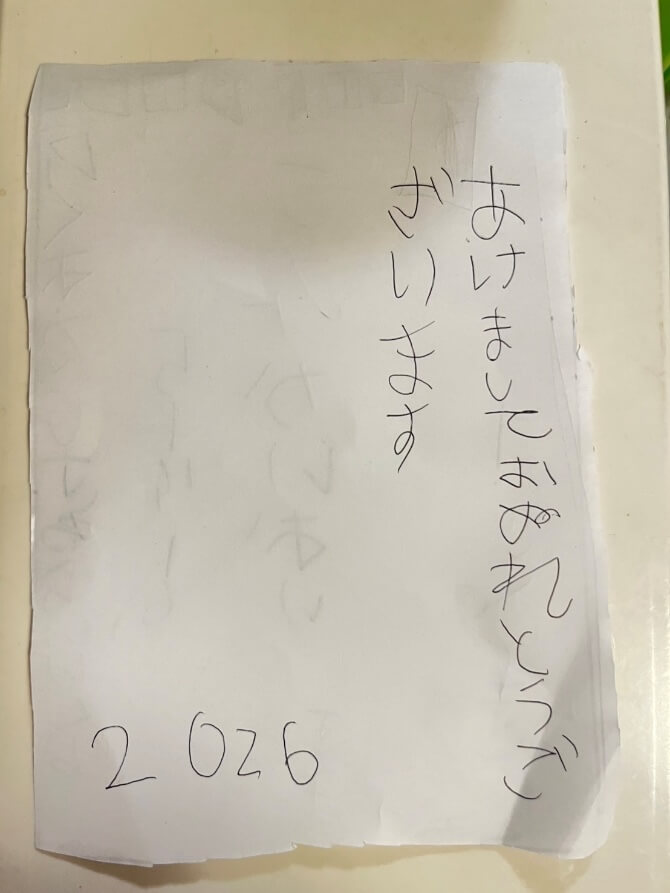 あけましておめでとうご
ざいます
2026